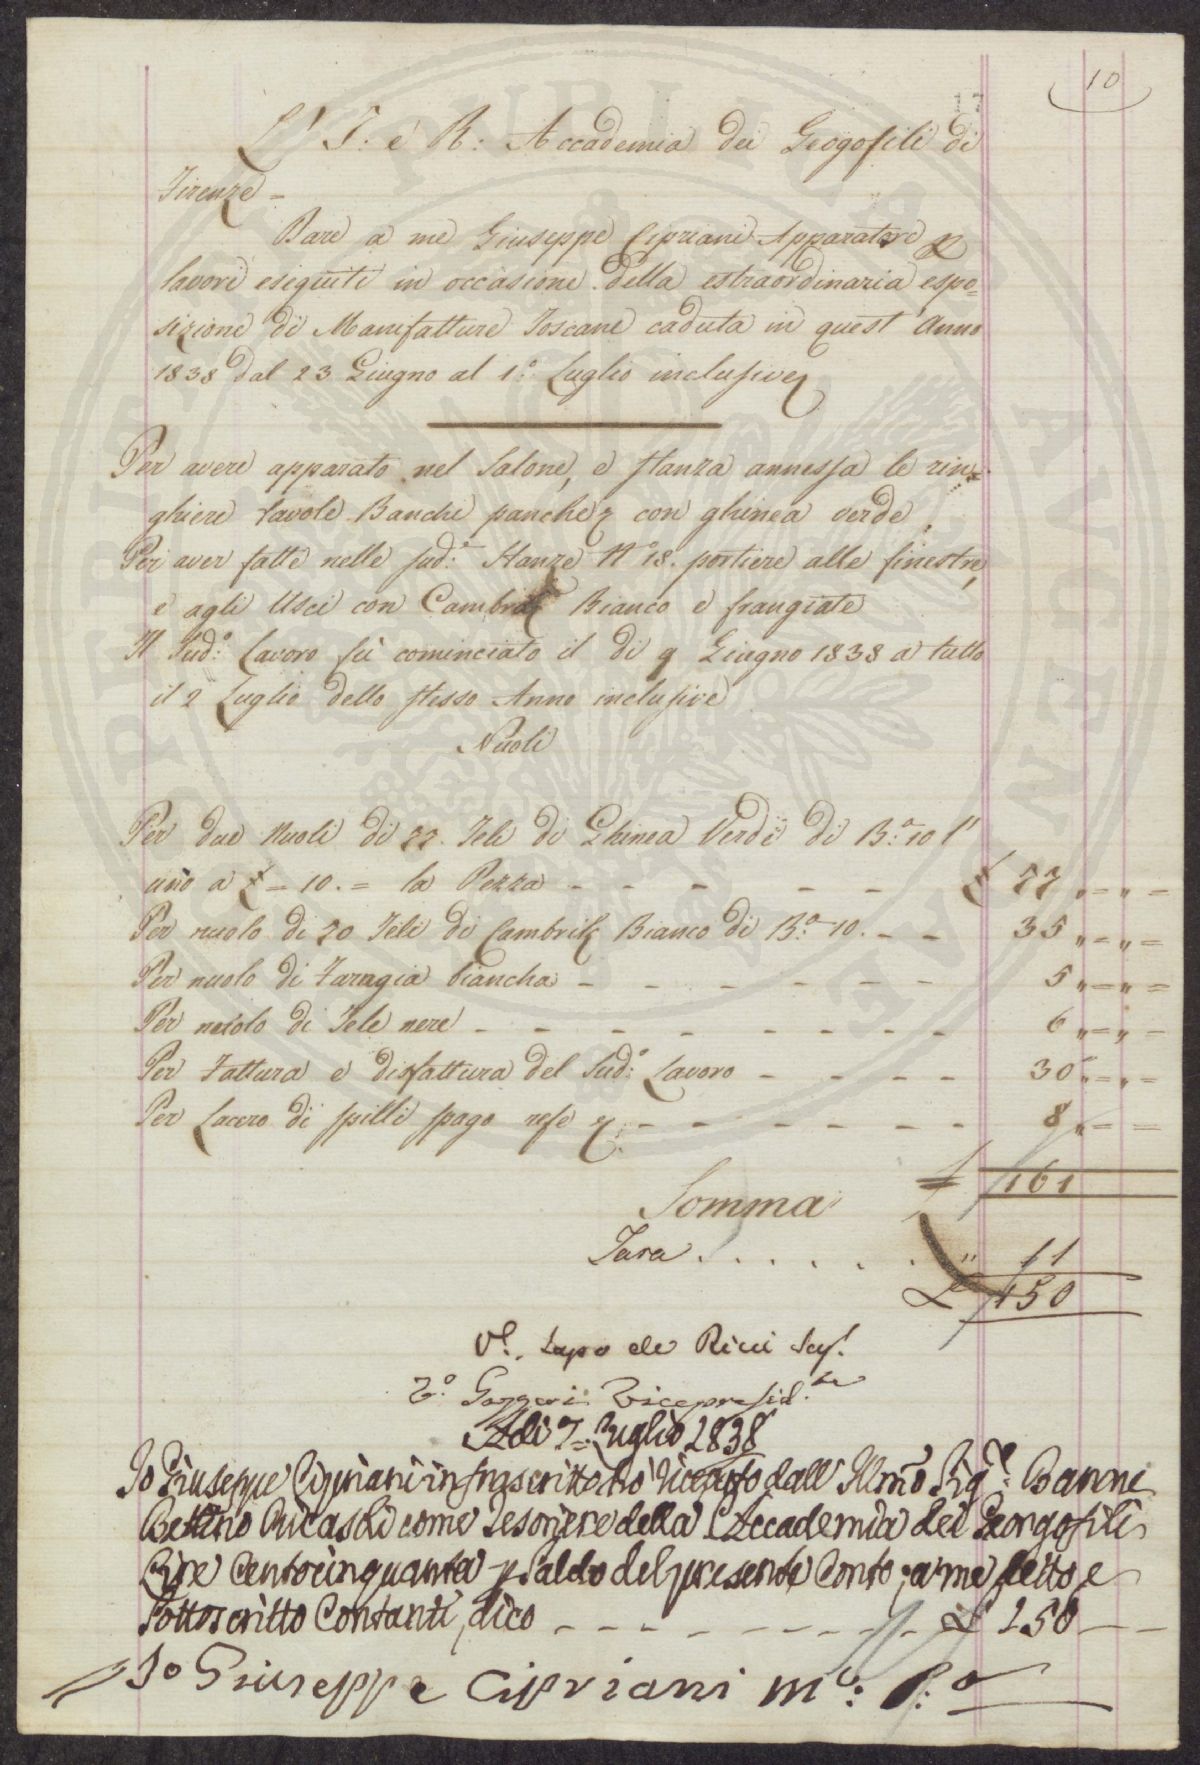 10
17
L' I: e R: Accademia dei Geogofili di
Firenze =
Dare a me Giuseppe Cipriani Apparatore p
lavori esiguiti in occasione della estraordinaria espo=
sizione di Manifatture Toscane caduta in quest' Anno
1838 dal 23 Giugno al 1.° Luglio inclusive
Per avere apparato nel Salone, e stanza annessa le rin=
ghiere tavole Banchi panche con ghinea verde
Per aver fatte nelle sud:e Stanze N° 18. portiere alle finestre,
e agli Usci con Bianco e frangiate
Il Sud:o Lavoro fù cominciato il di 9 Giugno 1838 a tutto
il 2 Luglio dello stesso Anno inclusive
Nuoli
Per due Nuoli di 22. Teli di Ghinea Verde di B:a 10 l'
uno a £ = 10. = la Pezza - - - - - £ 77 " = " =
Per nuolo di 20 Teli di Cambrik Bianco di B:a 10. - - 35 " = " =
Per nuolo di biancha - - - - - - 5 " = " =
Per nuolo di Tele nere - - - - - - - - 6 " = " =
Per Fattura e disfattura del Sud:o Lavoro - - - - 30 " = " =
Per Lacero di spilli spago refe - - - - - - - 8 " = =
Somma £ 161
Tara . . . . . . " 11
£ 150
V.° Lapo de Ricci Seg.
V.° Gazzeri Vicepresid.te
Adi 7= Luglio 1838
Io Giuseppe Cipriani infrascritto hò dall' Illmo Sig:e Barone
Bettino Ricasoli come Tesoriere della Accademia dei Georgofili
Lire Centocinquanta p Saldo del presente Conto; a me detto e
Sottoscritto Contanti, dico - - - - - - - - - £ 150 - -
Io Giuseppe Cipriani mo: p:a